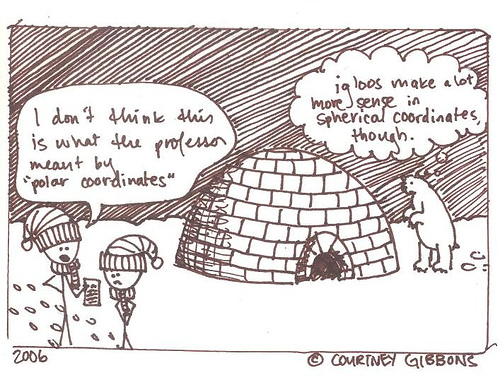 I don't think this
is what the professor
meant by
"polar coordinates"
igloos make a lot
more sense in
spherical coordinates,
though.
2006
© COURTNEY GIBBONS